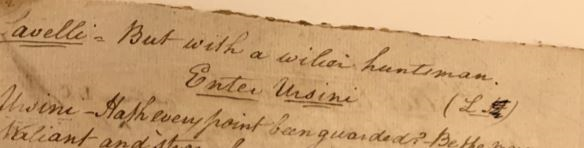 Lavelli - But with a wilier huntsman.
Enter Ursini
(L
Ursini - Hath every point been guarded? - Be the
Valiant and